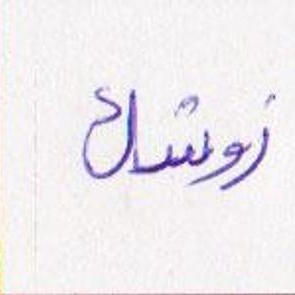 زوشاع